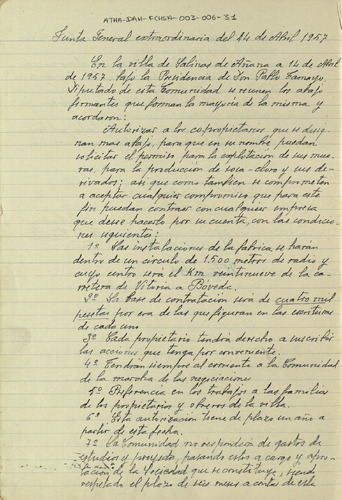 ATHA-DAH-FCHSA-003-006-31
Junta General extraordinaria del 14 de Abril 1957
En la villa de Salinas de Añana a 14 de Abril
de 1957 bajo la Presidencia de Don Pablo Tamayo,
Diputado de esta Comunidad se reunen los abajo
firmantes que forman la mayoria de la misma y
acordaron:
Autorizar a los copropietarios que se desig-
nan mas abajo, para que en su nombre puedan
solicitar el permiso para la explotación de sus mue-
ras, para la produccion de sosa-cloro y sus de-
rivados; asi que como tambien se comprometen
a aceptar cualquier compromiso que para este
fin puedan contraer con cualquier empresa
que desee hacerlo por su cuenta, con las condicio-
nes siguientes:
1º Las instalaciones de la fabrica, se harán
dentro de un circulo de 1.500 metros de radio y
cuyo centro será el Km. veintinueve de la ca-
rretera de Vitoria a Bóveda.
2º La base de contratación será de cuatro mil
pesetas por era de las que figuran en las escrituras
de cada uno.
3º Cada propietario tendrá derecho a suscribir
las acciones que tenga por conveniente.
4º Tendrán siempre al corriente a la Comunidad
de la marcha de las negociaciones
5º Preferencia en los trabajos a las familias
de los propietarios y obreros de la villa.
6º Esta autorizacion tiene de plazo un año a
partir de esta fecha.
7º La Comunidad no respondera de gastos de
estudios y proyecto, pasando estos a cargo y
de la Sociedad que se constituye,
respetado el plazo de seis meses a contar de esta